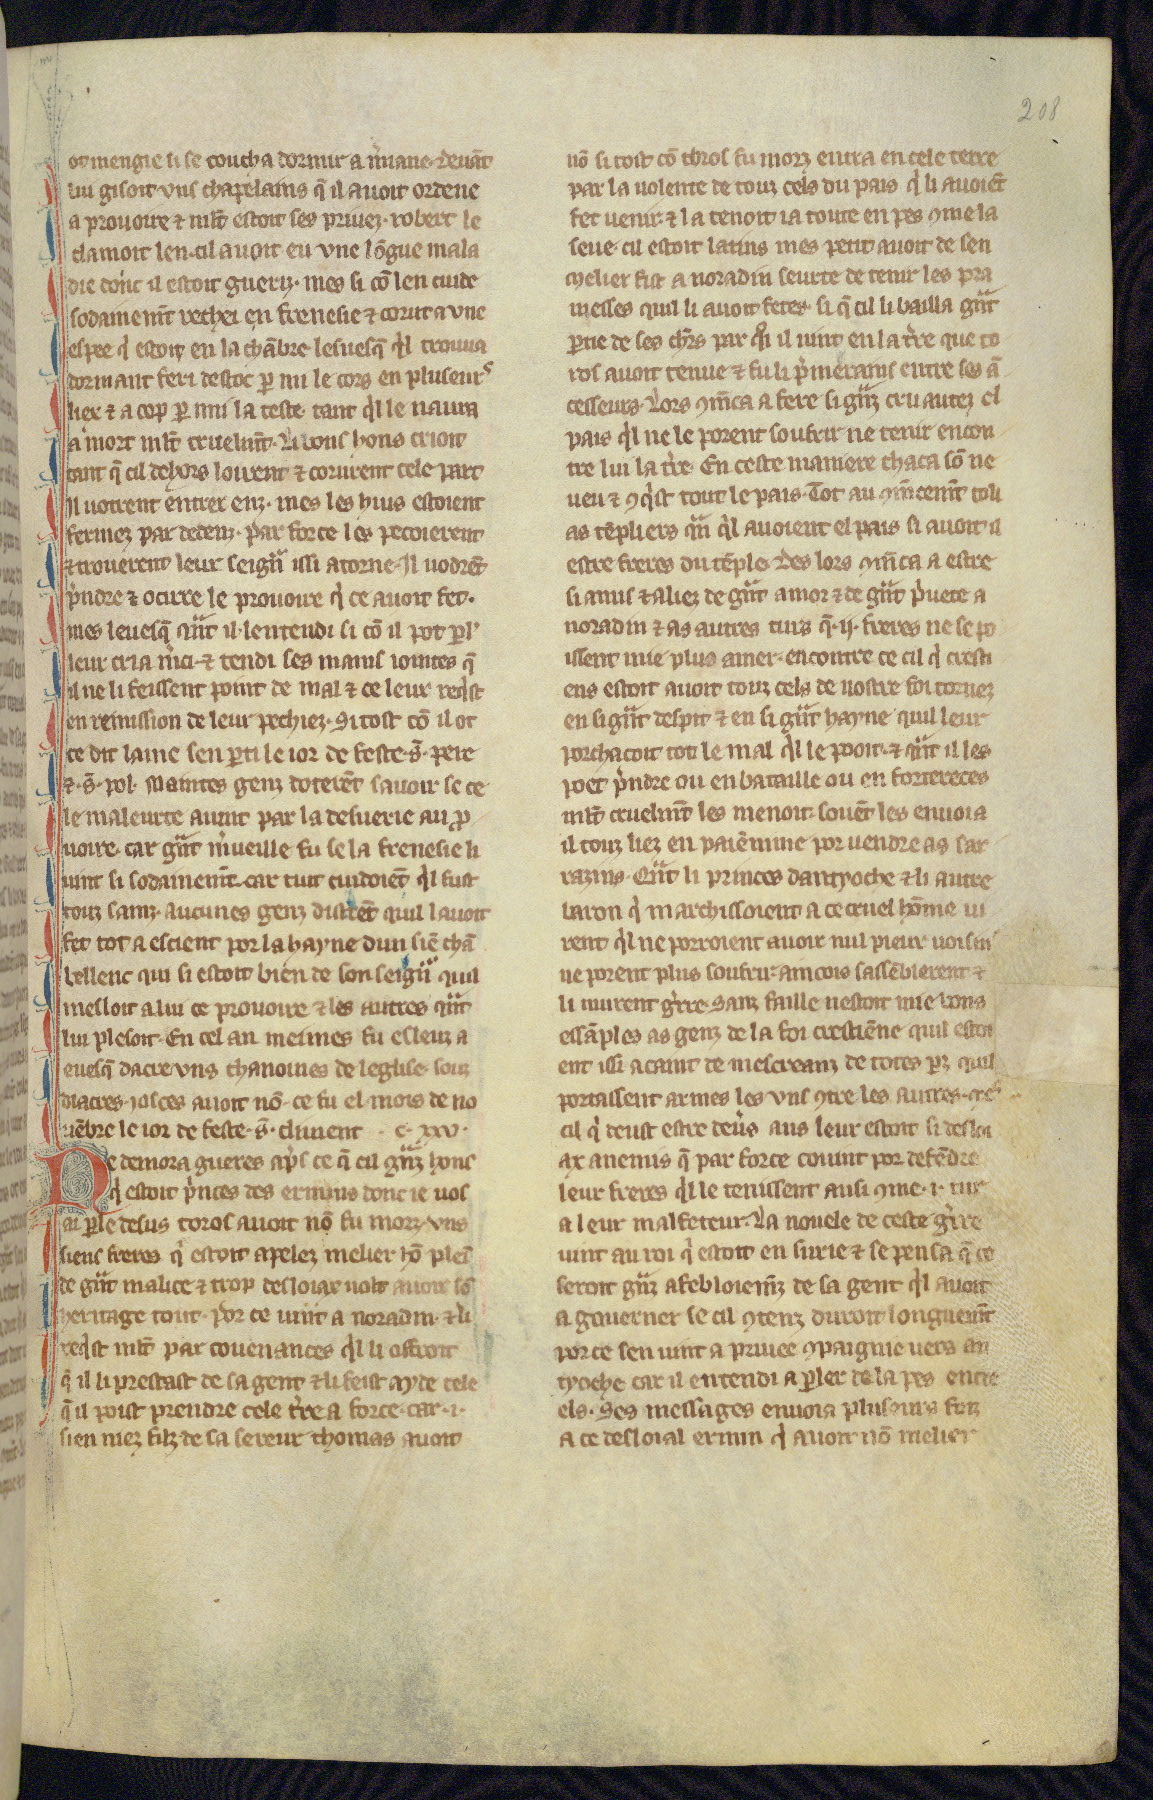 208
ot mengie si se coucha dormir a miriane. devãt
lui gisoit uns chapelains q̃ il avoit ordene
a provoire ⁊ ml̃t estoit ses privez. robert le
clamoit len. cil avoit eu une lõgue mala
die donc il estoit gueriz. mes si cõ len cuide
sodainem̃t rechei en frenesie ⁊ corut a une
espee q̉ estoit en la chãbre levesq̃ q̉l trouva
dormant feri destoc ꝑ mi le cors en pluseurs
liex ⁊ a cop ꝑ mi la teste. tant q̉l le navra
a mort ml̃t cruelm̃t. Li bons hons crioit
tant q̃ cil dehors loirent ⁊ corurent cele part
Il votrent entrer enz. mes les huis estoient
fermez par dedenz. par force les pecoierent
⁊ trouverent leur seign̄ issi atorne. Il vodrẽt
p̉ndre ⁊ ocirre le provoire q̉ ce avoit fet.
mes levesq̃ q̃nt il lentendi si cõ il pot ꝑl'
leur cria m̉ci. ⁊ tendi ses mains iointes q̃
il ne li feissent point de mal ⁊ ce leur req̉st
en remission de leur pechiez. Si tost cõ il ot
ce dit lame sen ꝑti le ior de feste .s̃. pere
⁊ .s̃. pol. Maintes genz doterẽt savoir se ce
le maleurte avint par la desverie au ꝓ
voire. car g̃nt m̉veille fu se la frenesie li
vint si sodainem̃t. car tuit cuidoiẽt q̉l fust
touz sainz. aucunes genz distrẽt quil lavoit
fet tot a escient por la hayne dun siẽ chã
bellenc qui si estoit bien de son seign̄ quil
mesloit a lui ce provoire ⁊ les autres q̃nt
lui plesoit. En cel an meimes fu esleuz a
evesq̃ dacre uns chanoines de leglise. souz
diacres. iosces avoit nõ. ce fu el mois de no
vẽbre le ior de feste .s̃. climent .c. xxv.
Ne demora gueres ap̉s ce q̃ cil g̃nz hons
q̉ estoit p̉nces des ermins donc ie vos
ai ꝑle desus toros avoit nõ fu morz. uns
siens freres q̉ estoit apelez melier hõ pleĩ
de g̃nt malice ⁊ trop desloiax volt avoir sõ
heritage tout. por ce vint a noradin. ⁊ li
req̉st ml̃t par covenances q̉l li offroit
q̃ il li prestast de sa gent ⁊ li feist ayde cele
q̃ il poist prendre cele t̉re a force. car .i.
sien niez filz de sa sereur thomas avoit
nõ si tost cõ thros fu morz entra en cele terre
par la volente de touz cels du pais q̉ li avoiẽt
fet venir. ⁊ la tenoit ia toute en pes ꝯme la
seue. cil estoit latins mes petit avoit de sen
melier fist a noradin seurte de tenir les pra
messes quil li avoit fetes. si q̃ cil li bailla g̃nt
ꝑtie de ses ch̉rs par q̉i il vint en la t̉re que to
ros avoit tenue ⁊ fu li p̉merains entre ses ã
cesseurs. Lors ꝯm̃ca a fere si g̃nz cruautez el
pais q̉l ne le porent soufrir ne tenir encon
tre lui la t̉re. En ceste maniere chaca sõ ne
veu ⁊ ꝯq̉st tout le pais. Tot au ꝯm̃cem̃t toli
as tẽpliers q̃n q̉l avoient el pais si avoit il
estre freres du tẽple. Des lors ꝯm̃ca a estre
si amis ⁊ aliez de g̃nt amor ⁊ de g̃nt p̉vete a
noradin ⁊ as autres turs q̃ .ij. freres ne se po
issent mie plus amer. encontre ce cil q̉ cresti
ens estoit avoit touz cels de nostre foi tornez
en si g̃nt despit ⁊ en si g̃nt hayne quil leur
porchacoit tot le mal q̉l le pooit. ⁊ q̃nt il les
poet p̉ndre ou en bataille ou en fortereces
ml̃t cruelm̃t les menoit. sovẽt les envoia
il touz liez en paiẽnime por vendre as sar
razins. Q̃nt li princes dantyoche ⁊ li autre
baron q̉ marchissoient a ce cruel hõme vi
rent q̉l ne porroient avoir nul pieur voisin
ne porent plus soufrir. aincois sassẽblerent ⁊
li murent g̉re. Sanz faille nestoit mie bons
essãples as genz de la foi crestiẽne quil estoi
ent issi acaint de mescreanz de totes ꝑz quil
portassent armes les uns ꝯtre les autres. mes
cil q̉ deust estre deũs aus leur estoit si desloi
ax anemis q̃ par force covint por defẽdre
leur freres q̉l le tenissent ausi ꝯme .i. tur
a leur malfeteur. La novele de ceste g̉re
vint au roi q̉ estoit en surie ⁊ se pensa q̃ ce
seroit g̃nz afebloiem̃z de sa gent q̉l avoit
a gouverner se cil ꝯtenz duroit longuem̃t
por ce sen vint a privee ꝯpaignie vers an
tyoche car il entendi a ꝑler de la pes entre
els. Ses messages envoia plusieurs foiz
a ce desloial ermin q̉ avoit nõ melier